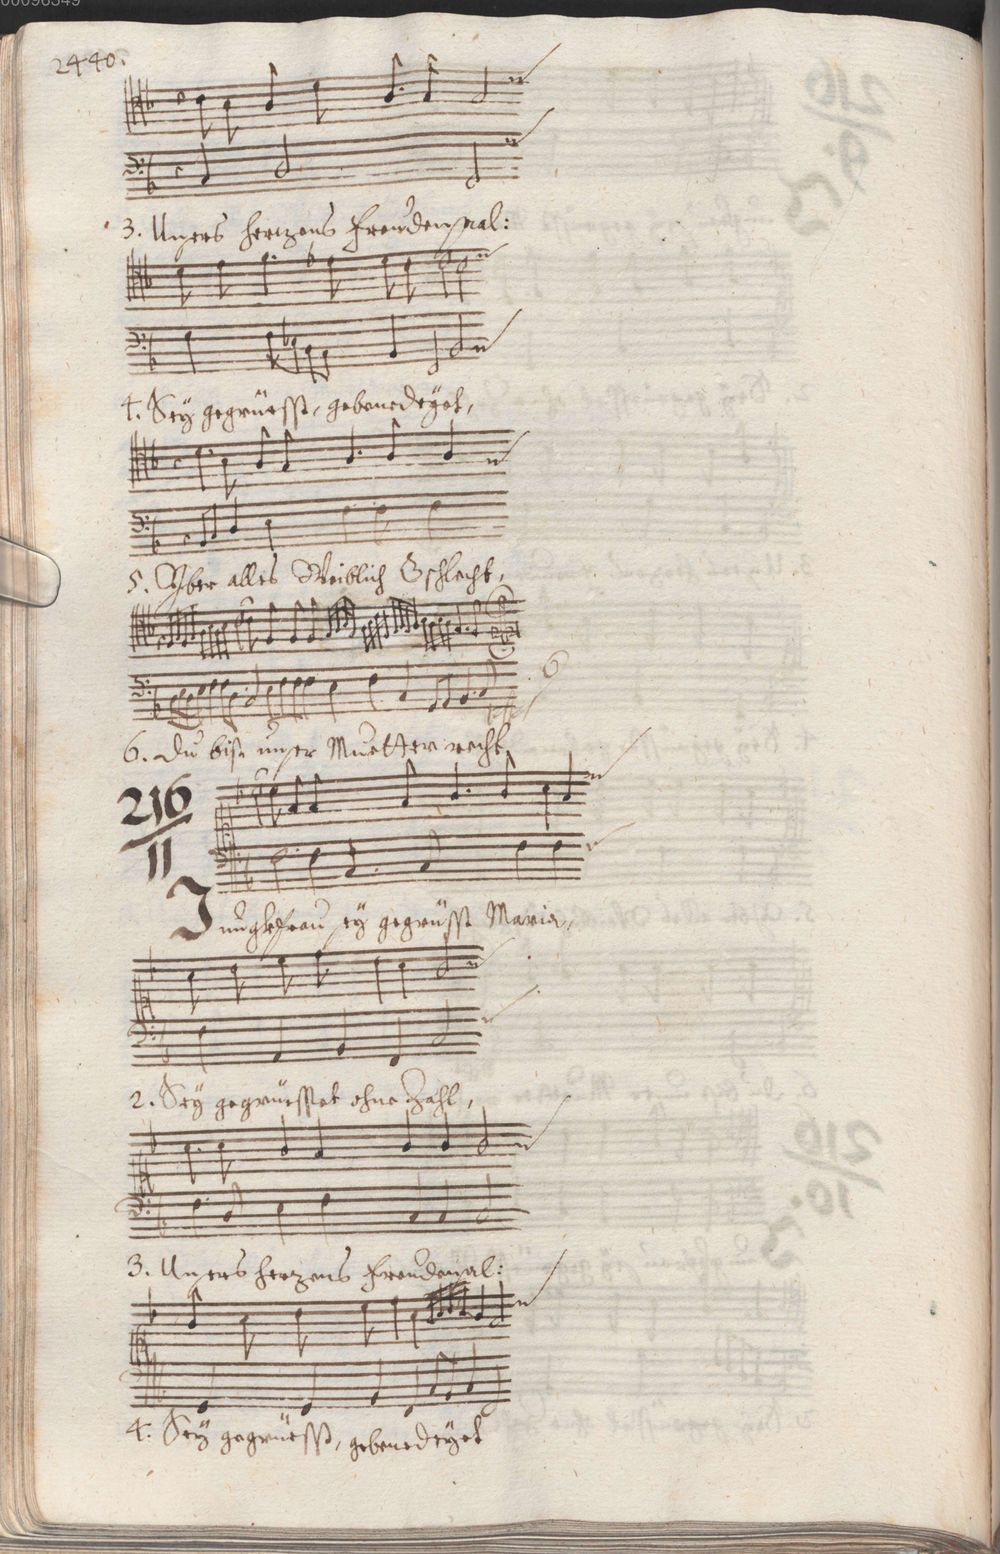 00096349
2440.
3. Unsers hertzens Freudensaal:
4. Sey gegrüesst, gebenedeyet,
5. Yber alles Weiblich Gschlecht,
6
6. Du bist unser Muetter recht,
216
11
Jungkfrau sey gegrüsst Maria,
2. Sey gegrüesset ohne Zahl,
3. Unsers hertzens Freudensal:
4. Sey gegrüesst, gebenedeyet